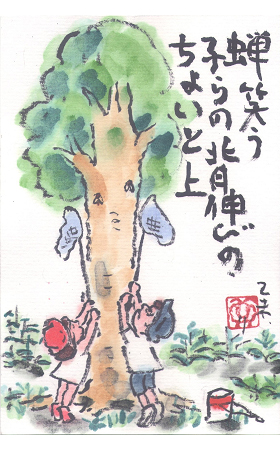 蝉笑う
子らの背伸びの
ちょいと上